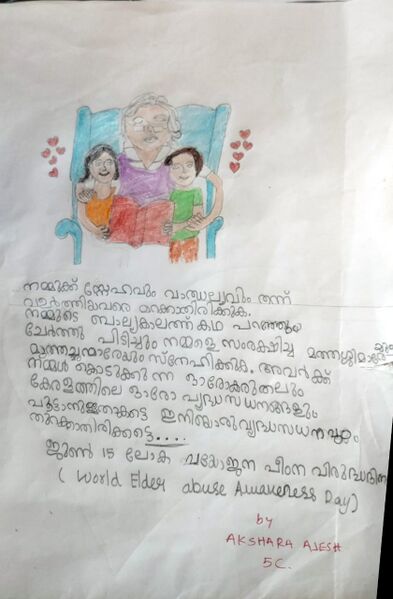 നമുക്ക് സ്നേഹവും വാത്സല്യവും തന്ന്
വളർത്തിയവരെ മറക്കാതിരിക്കുക.
നമ്മുടെ ബാല്യകാലത്ത് കഥ പറഞ്ഞും
ചേർത്തു പിടിച്ചും നമ്മളെ സംരക്ഷിച്ച
മുത്തച്ഛന്മാരേയും സ്നേഹിക്കുക. അവർക്ക്
നിങ്ങൾ കൊടുക്കുന്ന ഓരോകരുതലും
കേരളത്തിലെ ഓരോ വൃദ്ധസധനങ്ങളും
ഇനിയൊരുവൃദ്ധസധനവും
തുറക്കാതിരിക്കട്ടെ.....
ജൂൺ 15 ലോക വയോജന പീഠന വിരുദ്ധദിനം
( World Elder abuse Awareness Day)
by
AKSHARA AJESH
5C.